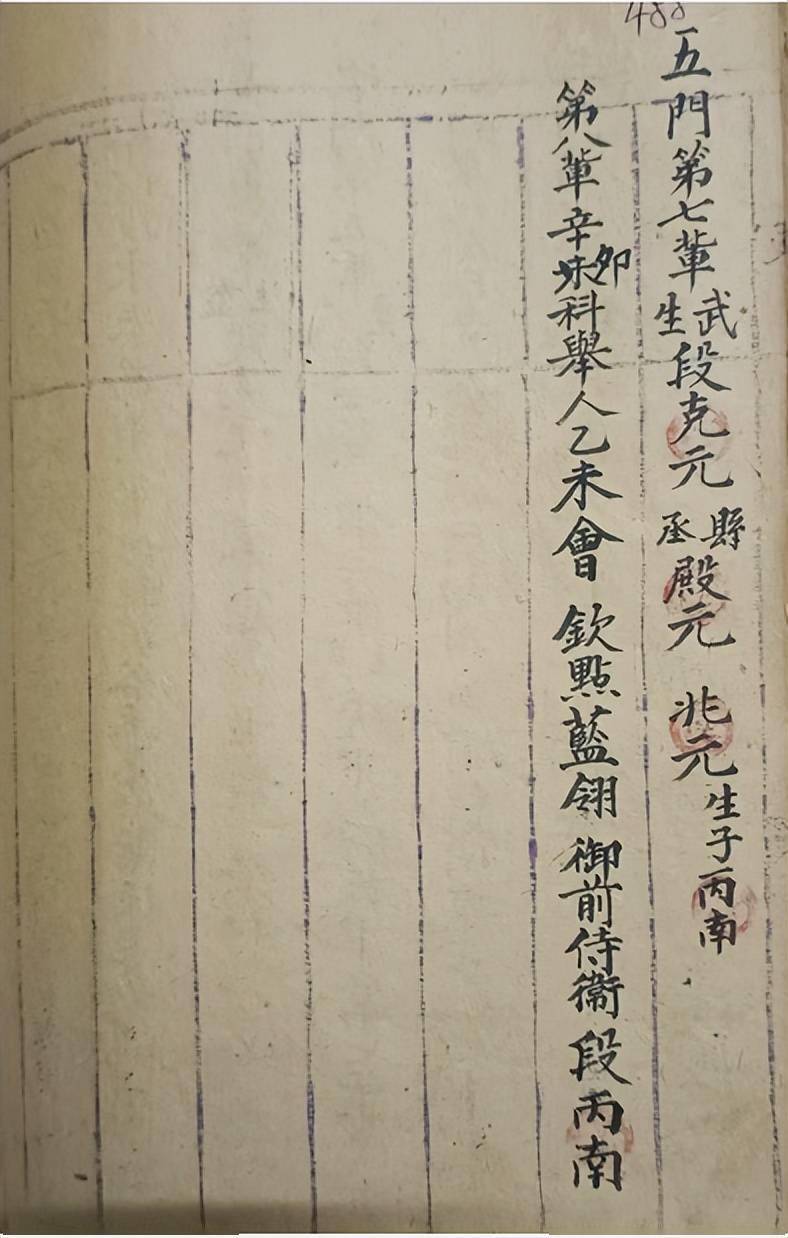 488
五門第七輩武生段克元 縣丞殿元 兆元生子丙南
第八輩辛卯科舉人乙未會 欽點藍翎 御前侍衞 段丙南